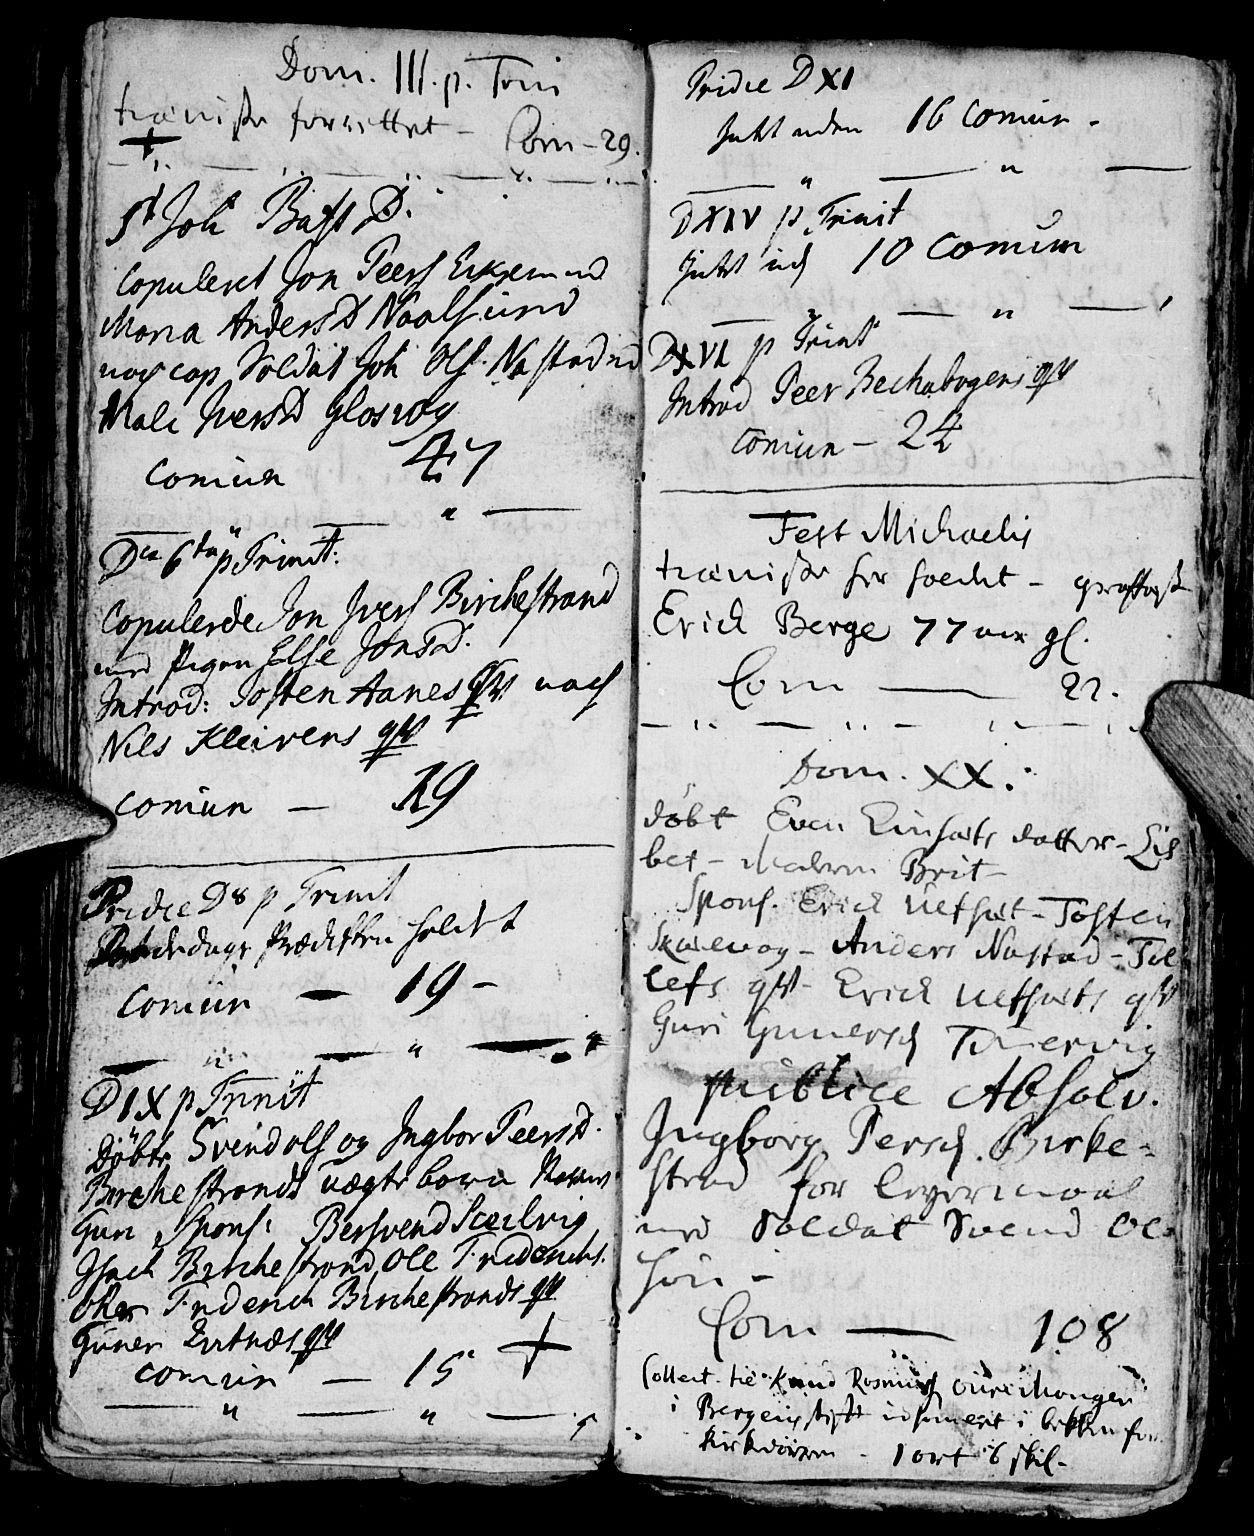 Dom. III. p. Trin
tienisten forrettet – Com – 29.
St Joh Bapt D.
Copuleret Jon Peers Eikrem und
Maria AndersD Naalsund
noch cop Soldat Joh Ols. Nastad ud
Mali IversD Glosvog
Comun 47
Dca 6ta p Trinit:
Copulerede Jon Ivers Birchestrand
med Pigen Else JonsD.
Introd: Josten Aanes qv noch
Nils Kleivens qv
comun – 19
Pridie D 8 p Trinit
Prædiken holdt
Comun – 19 –
D IX p Trinit
Döbte Svend Ols og Ingbor PeersD.
Birchestrands uægte born
Guri Spons: Bersvend
Isach Birchestrand, Ole Friderichs.
Friderich Birchestrands qv
Guner qv
comun – 15
Pridie D XI
Intet uden 16 Comun –
D XIV p Trinit
Intet uden 10 Comun
D XVI p Trinit
Introd Peer Bechabogens qv
comun – 24
Fest Michaelis
tienisten forr
Erick Berge 77 aar gl.
Com — 22.
Dom. XX.
döbt Even Einsæts datter – Lis
bet – Moderen Brit –
Spons. Erick Uetsæt – Tosten
Skalevog – Anders Nastad – Tol
lefs qv – Erick Uetsæts qv
Guri Gunersd
publice Absolv.
Ingborg Persd. Birke-
strand for leyermaal
med Soldat Svend Ol-
sön –
Com — 108
Collect. til Knud Rasmus
i Bergens stift
kirkedören – 1 ort 6 skil –